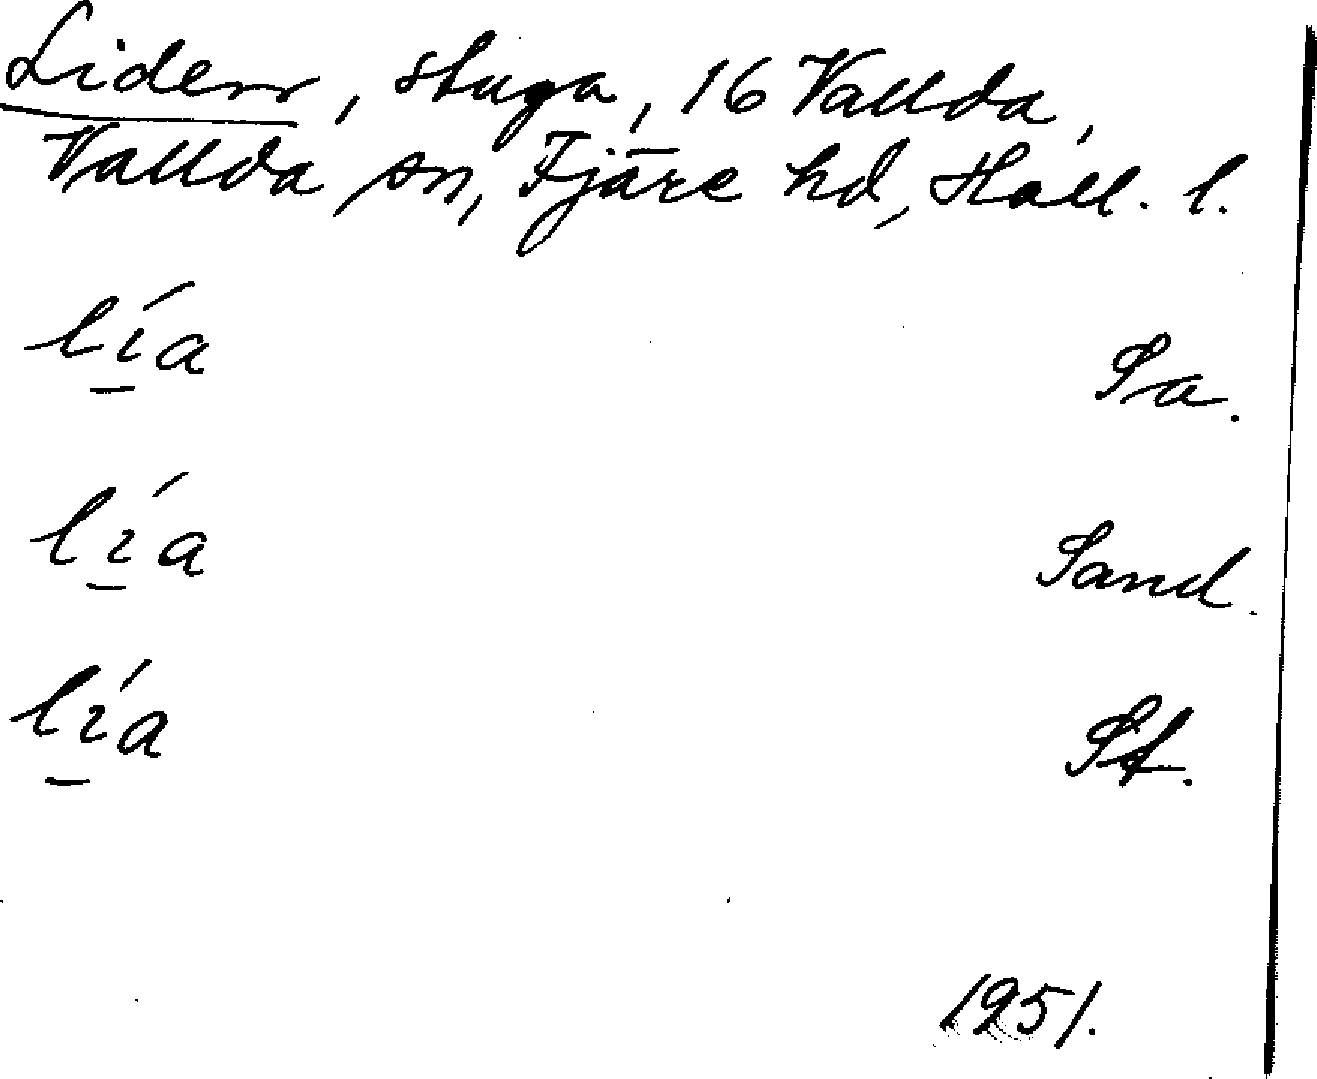 Liden, stuga, 16 Vallda,
Vallda sn, Fjäre hd, Hall. l.
lí̲a Sa.
lí̲a Sand.
lí̲a St.
1951.